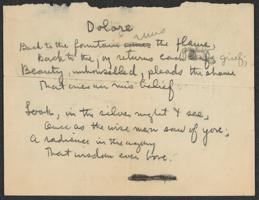 Dolore
Back to the fountain runs the flame,
Back to the joy returns each grief;
Beauty, unhouselled, pleads the shame
That cries in belief
Look, in the silver night & see,
Once as the wise men saw of yore,
A radiance in the
That wisdom ever bore.